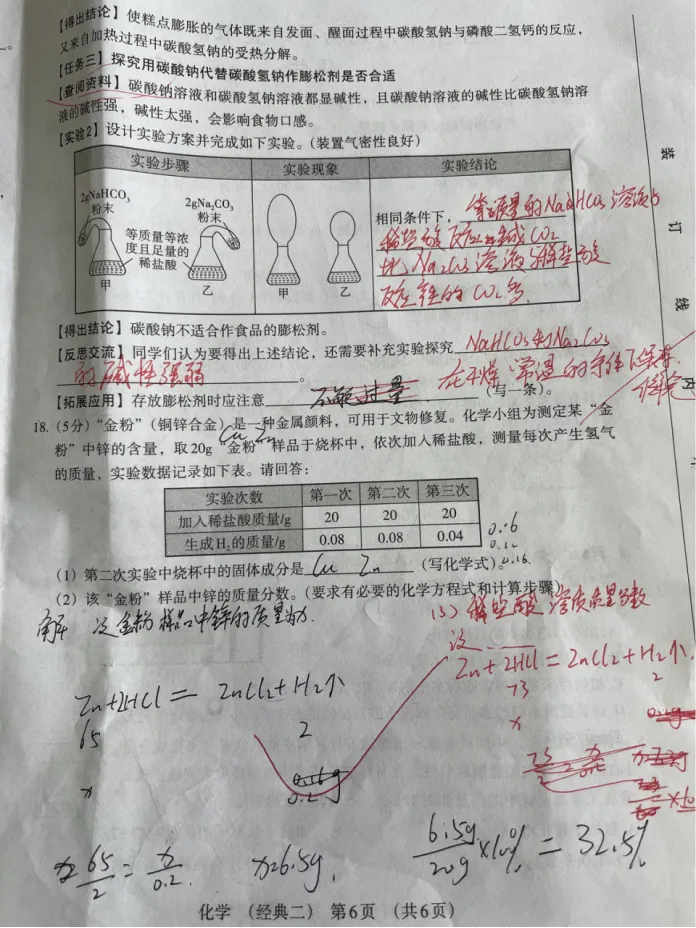 【得出结论】使糕点膨胀的气体既来自发面、醒面过程中碳酸氢钠与磷酸二氢钙的反应,
又来自加热过程中碳酸氢钠的受热分解。
【任务三】探究用碳酸钠代替碳酸氢钠作膨松剂是否合适
【查阅资料】碳酸钠溶液和碳酸氢钠溶液都显碱性,且碳酸钠溶液的碱性比碳酸氢钠溶
液的碱性强,碱性太强,会影响食物口感。
【实验2】设计实验方案并完成如下实验。(装置气密性良好)
实验步骤 实验现象 实验结论
2gNaHCO₃
粉末
2gNa₂CO₃
粉末
等质量等浓
度且足量的
稀盐酸
甲 乙
甲 乙
相同条件下, 等质量的NaHCO₃溶液与
稀盐酸反应生成CO₂
比Na₂CO₃溶液与稀盐酸
反应生成的CO₂多.
【得出结论】碳酸钠不适合作食品的膨松剂。
【反思交流】同学们认为要得出上述结论,还需要补充实验探究 NaHCO₃和Na₂CO₃
的碱性强弱 。
【拓展应用】存放膨松剂时应注意 不能过量 (写一条)。
在干燥、常温的条件下保存.
18.(5分)“金粉”(铜锌合金)是一种金属颜料,可用于文物修复。化学小组为测定某“金
Cu Zn
粉”中锌的含量,取20g“金粉”样品于烧杯中,依次加入稀盐酸,测量每次产生氢气
的质量,实验数据记录如下表。请回答:
实验次数 第一次 第二次 第三次
加入稀盐酸质量/g 20 20 20
生成H₂的质量/g 0.08 0.08 0.04
0.16
(1)第二次实验中烧杯中的固体成分是 Cu Zn (写化学式)。
(2)该“金粉”样品中锌的质量分数。(要求有必要的化学方程式和计算步骤)
解 设金粉样品中锌的质量为x.
(3)稀盐酸溶质质量分数
设
Zn+2HCl=ZnCl₂+H₂↑
73 2
x
Zn+2HCl= ZnCl₂+H₂↑
65 2
x 0.2g
65/2=x/0.2 x=6.5g,
6.5g/20g×100%=32.5%
化学 (经典二) 第6页 (共6页)
装
订
线
内